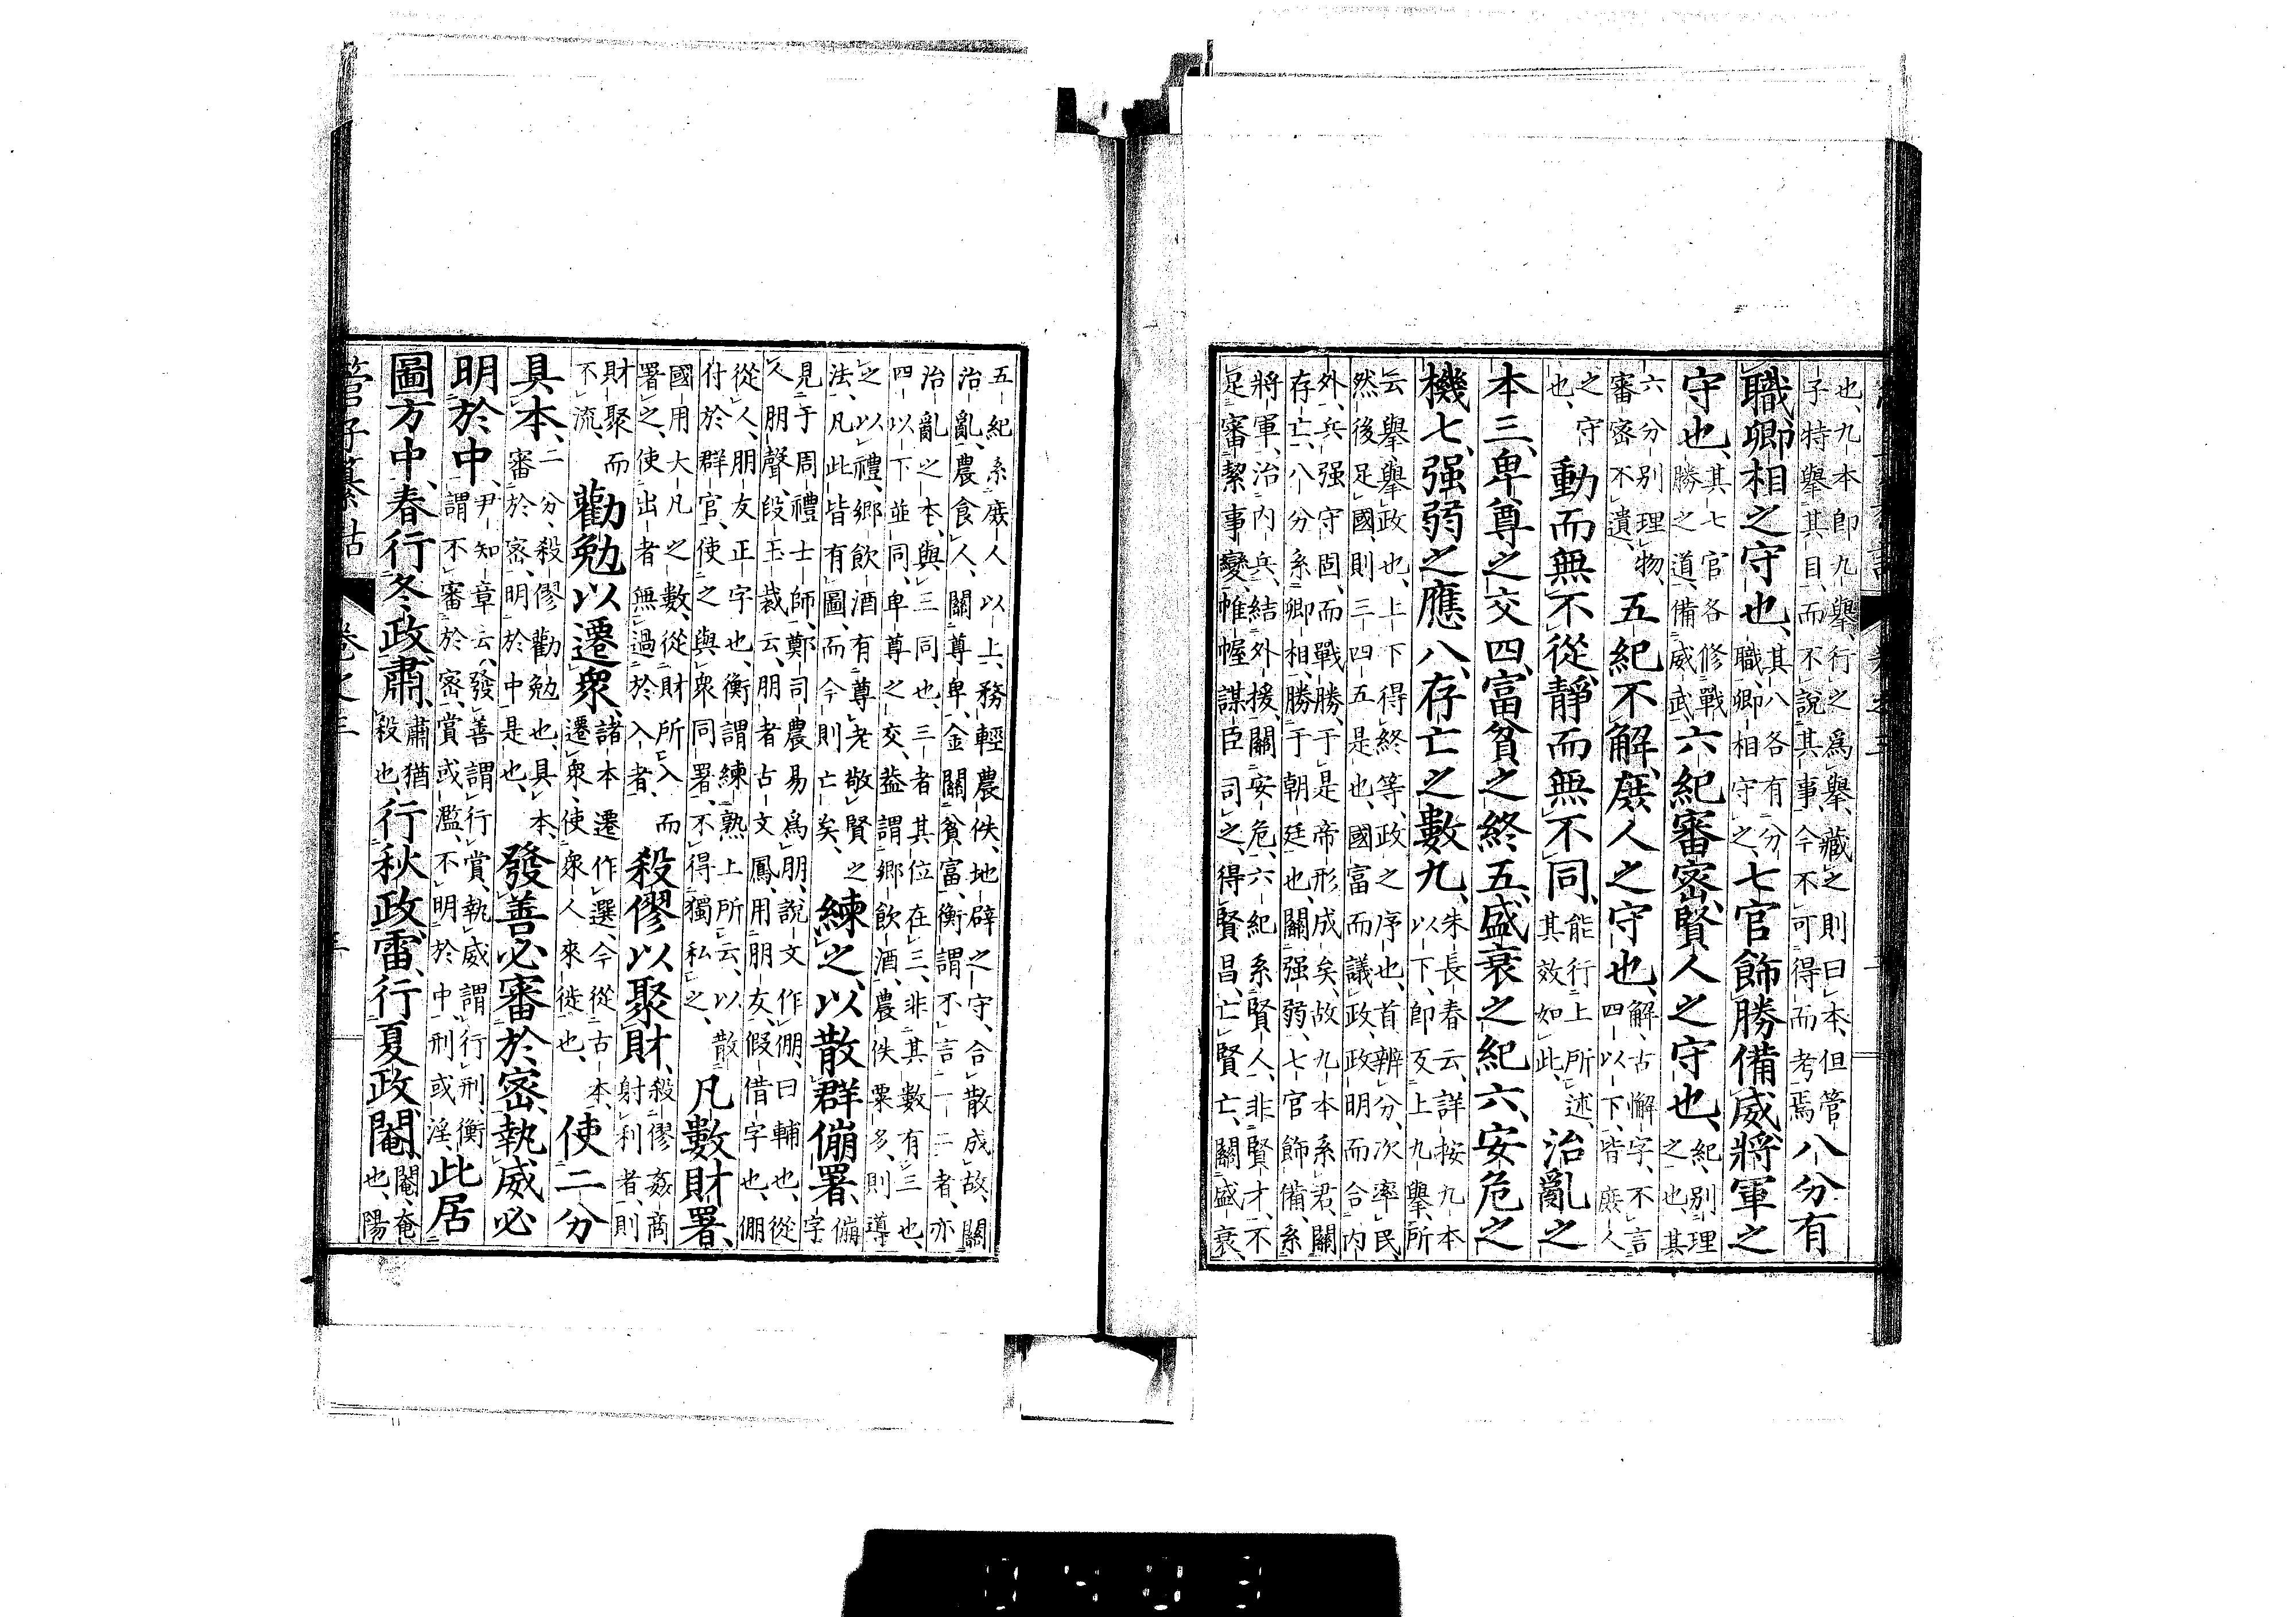 也、九本卽九擧、行之爲擧、藏之則曰本、但管
子特擧其目、而不說其事、今不可得而考焉
八分有
職、卿相之守也、
其八各有分
職、卿相守之、
七官飾勝備威、將軍之
守也、
其七官各修戰
勝之道、備威武、
六紀審密、賢人之守也、
紀、別理
之也、其
六分別理物、
審密不遺、
五紀不解、庶人之守也、
解、古懈字、不言
四以下、皆庶人
之守
也、
動而無不從、靜而無不同、
能行上所述、
其效如此、
治亂之
本三、卑尊之交四、富貧之終五、盛衰之紀六、安危之
機七、强弱之應八、存亡之數九、
朱長春云、詳按九本
以下、卽反上九擧、所
云擧、擧政也、上下得終等、政之序也、首辨分、次率民、
然後足國、則三四五是也、國富而議政、政明而合內
外、兵强守固、而戰勝、于是帝形成矣、故九本系君、關
存亡、八分系卿相、勝于朝廷也、關强弱、七官飾備、系
將軍、治內兵、結外援、關安危、六紀系賢人、非賢才、不
足審絜事變、帷幄謀臣司之、得賢昌、亡賢亡、關盛衰、
五紀系庶人、以上、務輕農佚、地辟之守、合散成故、關
治亂、農食人、關尊卑、金關貧富、衡謂不言一二者、亦
治亂之本、與三同也、三者其位在三、非其數有三也、
四以下並同、卑尊之交、蓋謂鄕飮酒、農佚粟多、則導
之以禮、鄕飮酒有尊老敬賢之
法、凡此皆有圖、而今則亡矣、
練之、以散群傰署、
傰
字
見于周禮士師、鄭司農易爲朋、說文作倗、曰輔也、從
人朋聲、段玉裁云、朋者占文鳳、用朋友、假借字也、倗
從人、朋友正字也、衡謂練熟上所云、以散
付於群官、使之與衆同署、不得獨私之、
凡數財署、
國用大凡之數、從財所入、而
署之、使出者無過於入者、
殺僇以聚財、
殺僇姦商
射利者、則
財聚而
不流、
勸勉以遷衆、
諸本遷作選今從古本、
遷衆、使衆人來徙也、
使二分
具本、
二分、殺僇勸勉也、具本、
審於密、明於中是也、
發善必審於密、執威必
明於中、
尹知章云、發善謂行賞、執威謂行刑、衡
謂不審於密、賞或濫、不明於中、刑或淫、
此居
圖方中、春行冬政肅、
肅猶
殺也、
行秋政雷、行夏政閹、
閹、奄
也、陽
管子纂詁 卷之三